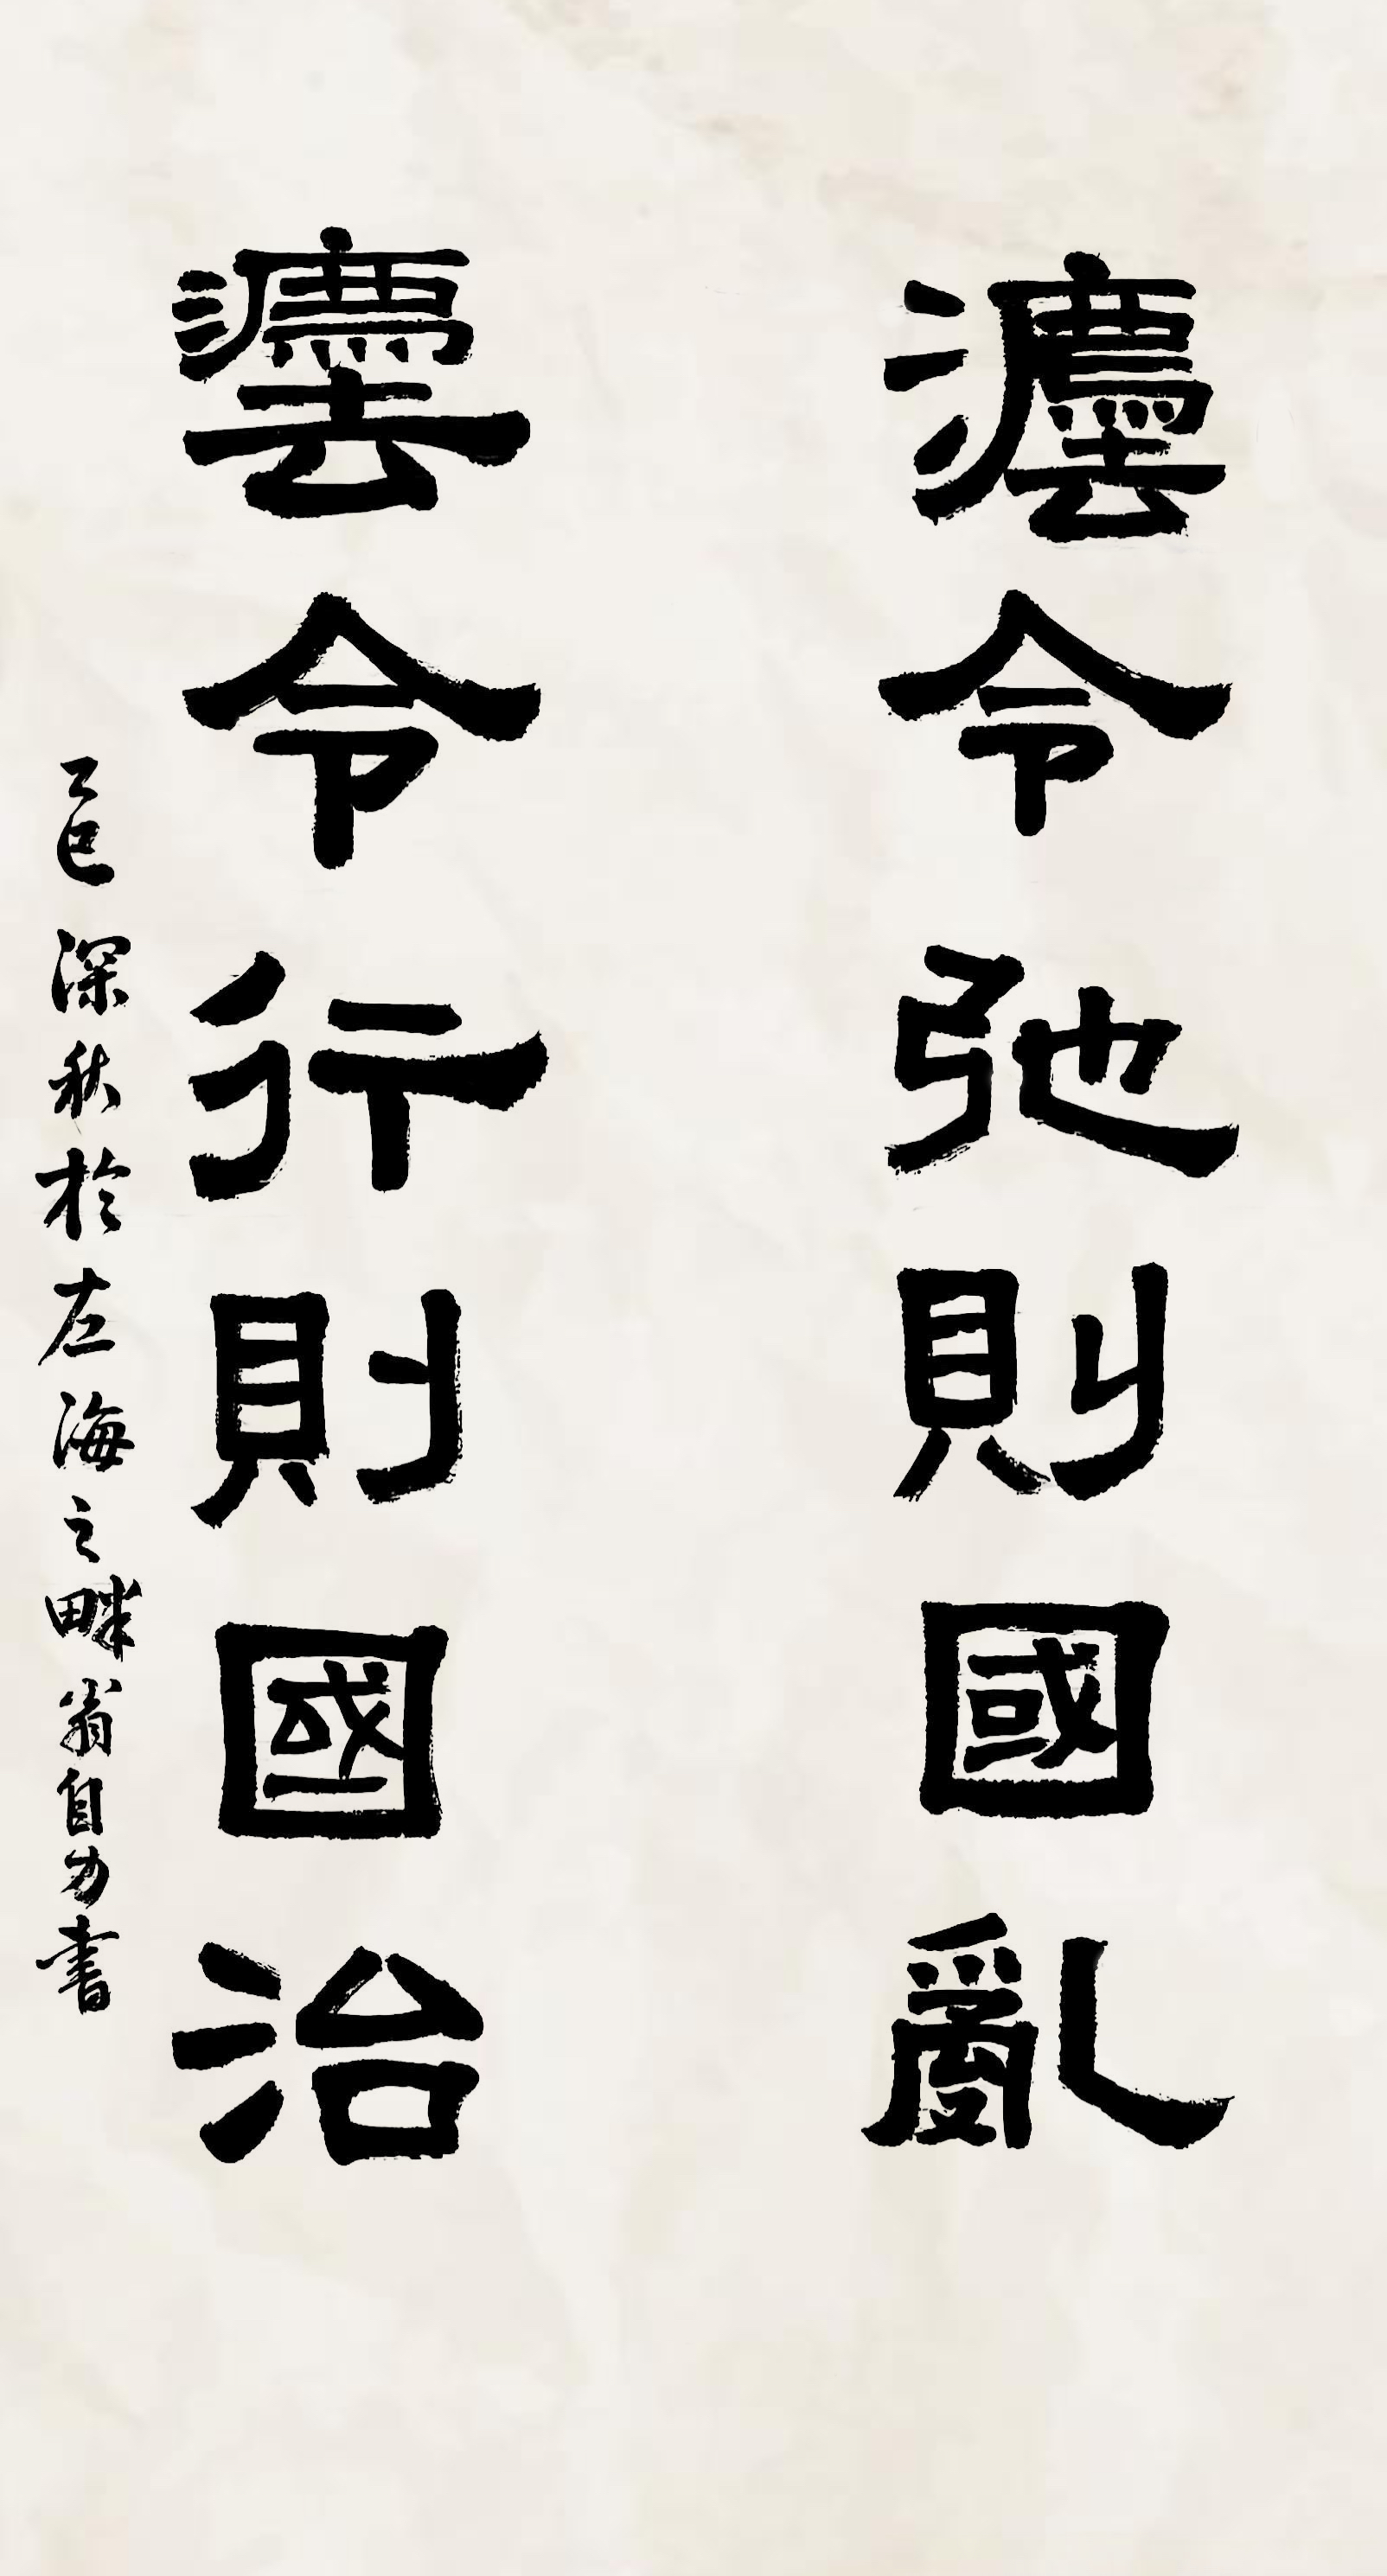 灋令弛則國亂
灋令行則國治
乙巳深秋於左海之畔翁自力書